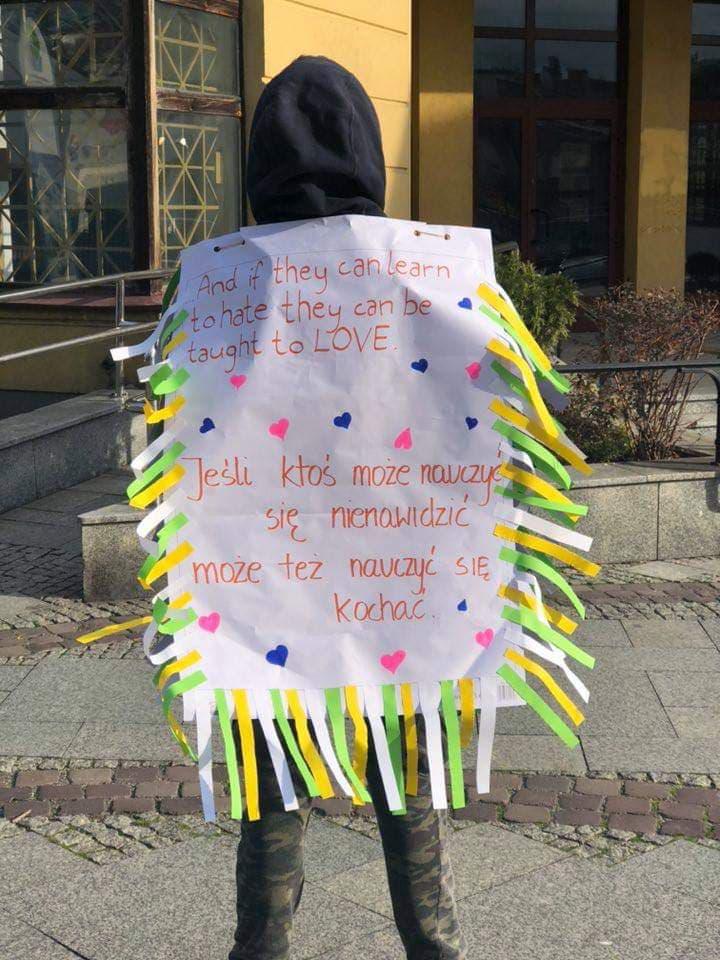 And if they can learn
to hate they can be
taught to LOVE.
Jeśli ktoś może nauczyć
się nienawidzić
może też nauczyć SIĘ
kochać.